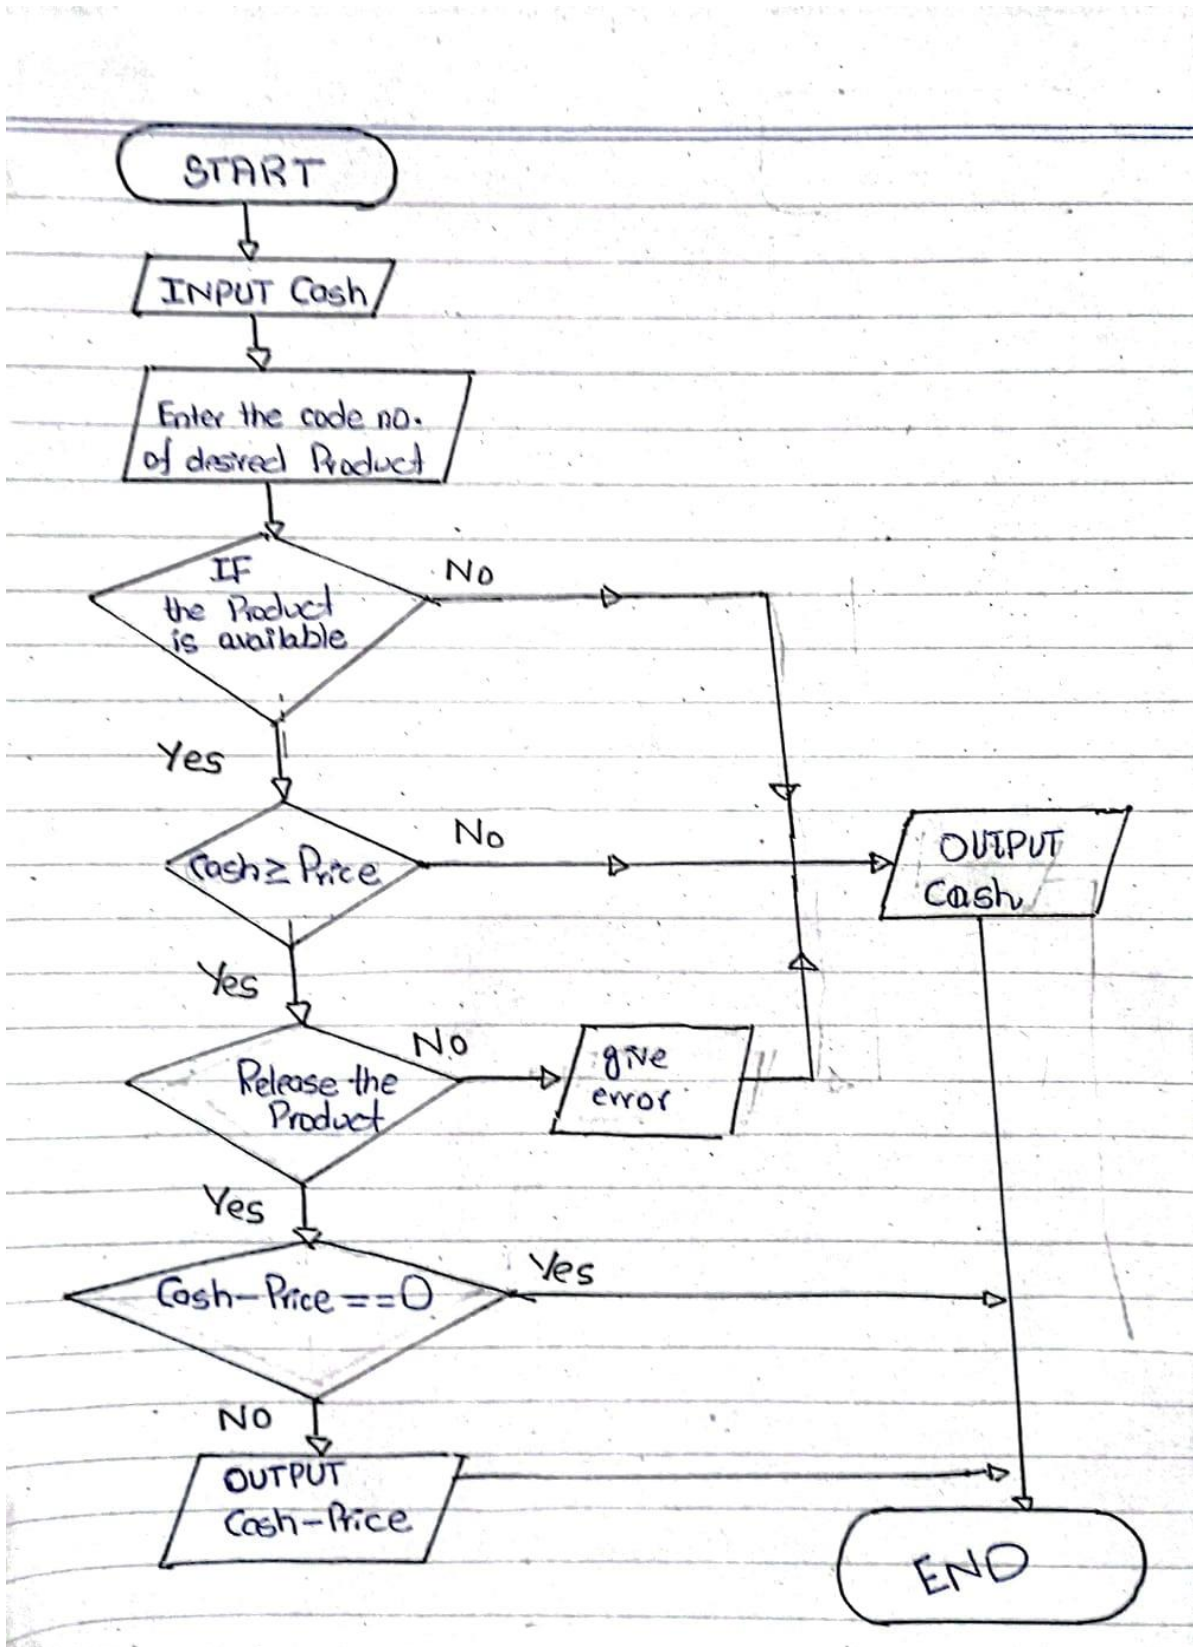 START
INPUT Cash
Enter the code no.
of desired Product
IF
the Product
is available
No
Yes
Cash≥Price
No
OUTPUT
Cash
Yes
Release the
Product
No
give
error
Yes
Cash-Price==0
Yes
NO
OUTPUT
Cash-Price
END